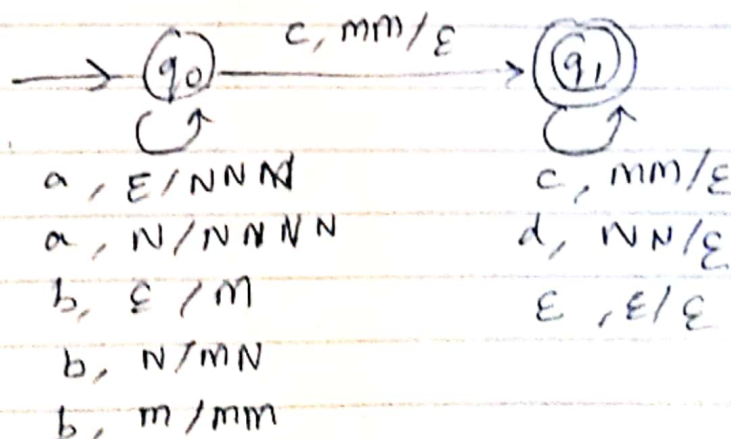 c, mm/ε
q0 q1
a, ε/NNN
a, N/NNNN
b, ε/m
b, N/mN
b, m/mm
c, mm/ε
d, NN/ε
ε, ε/ε